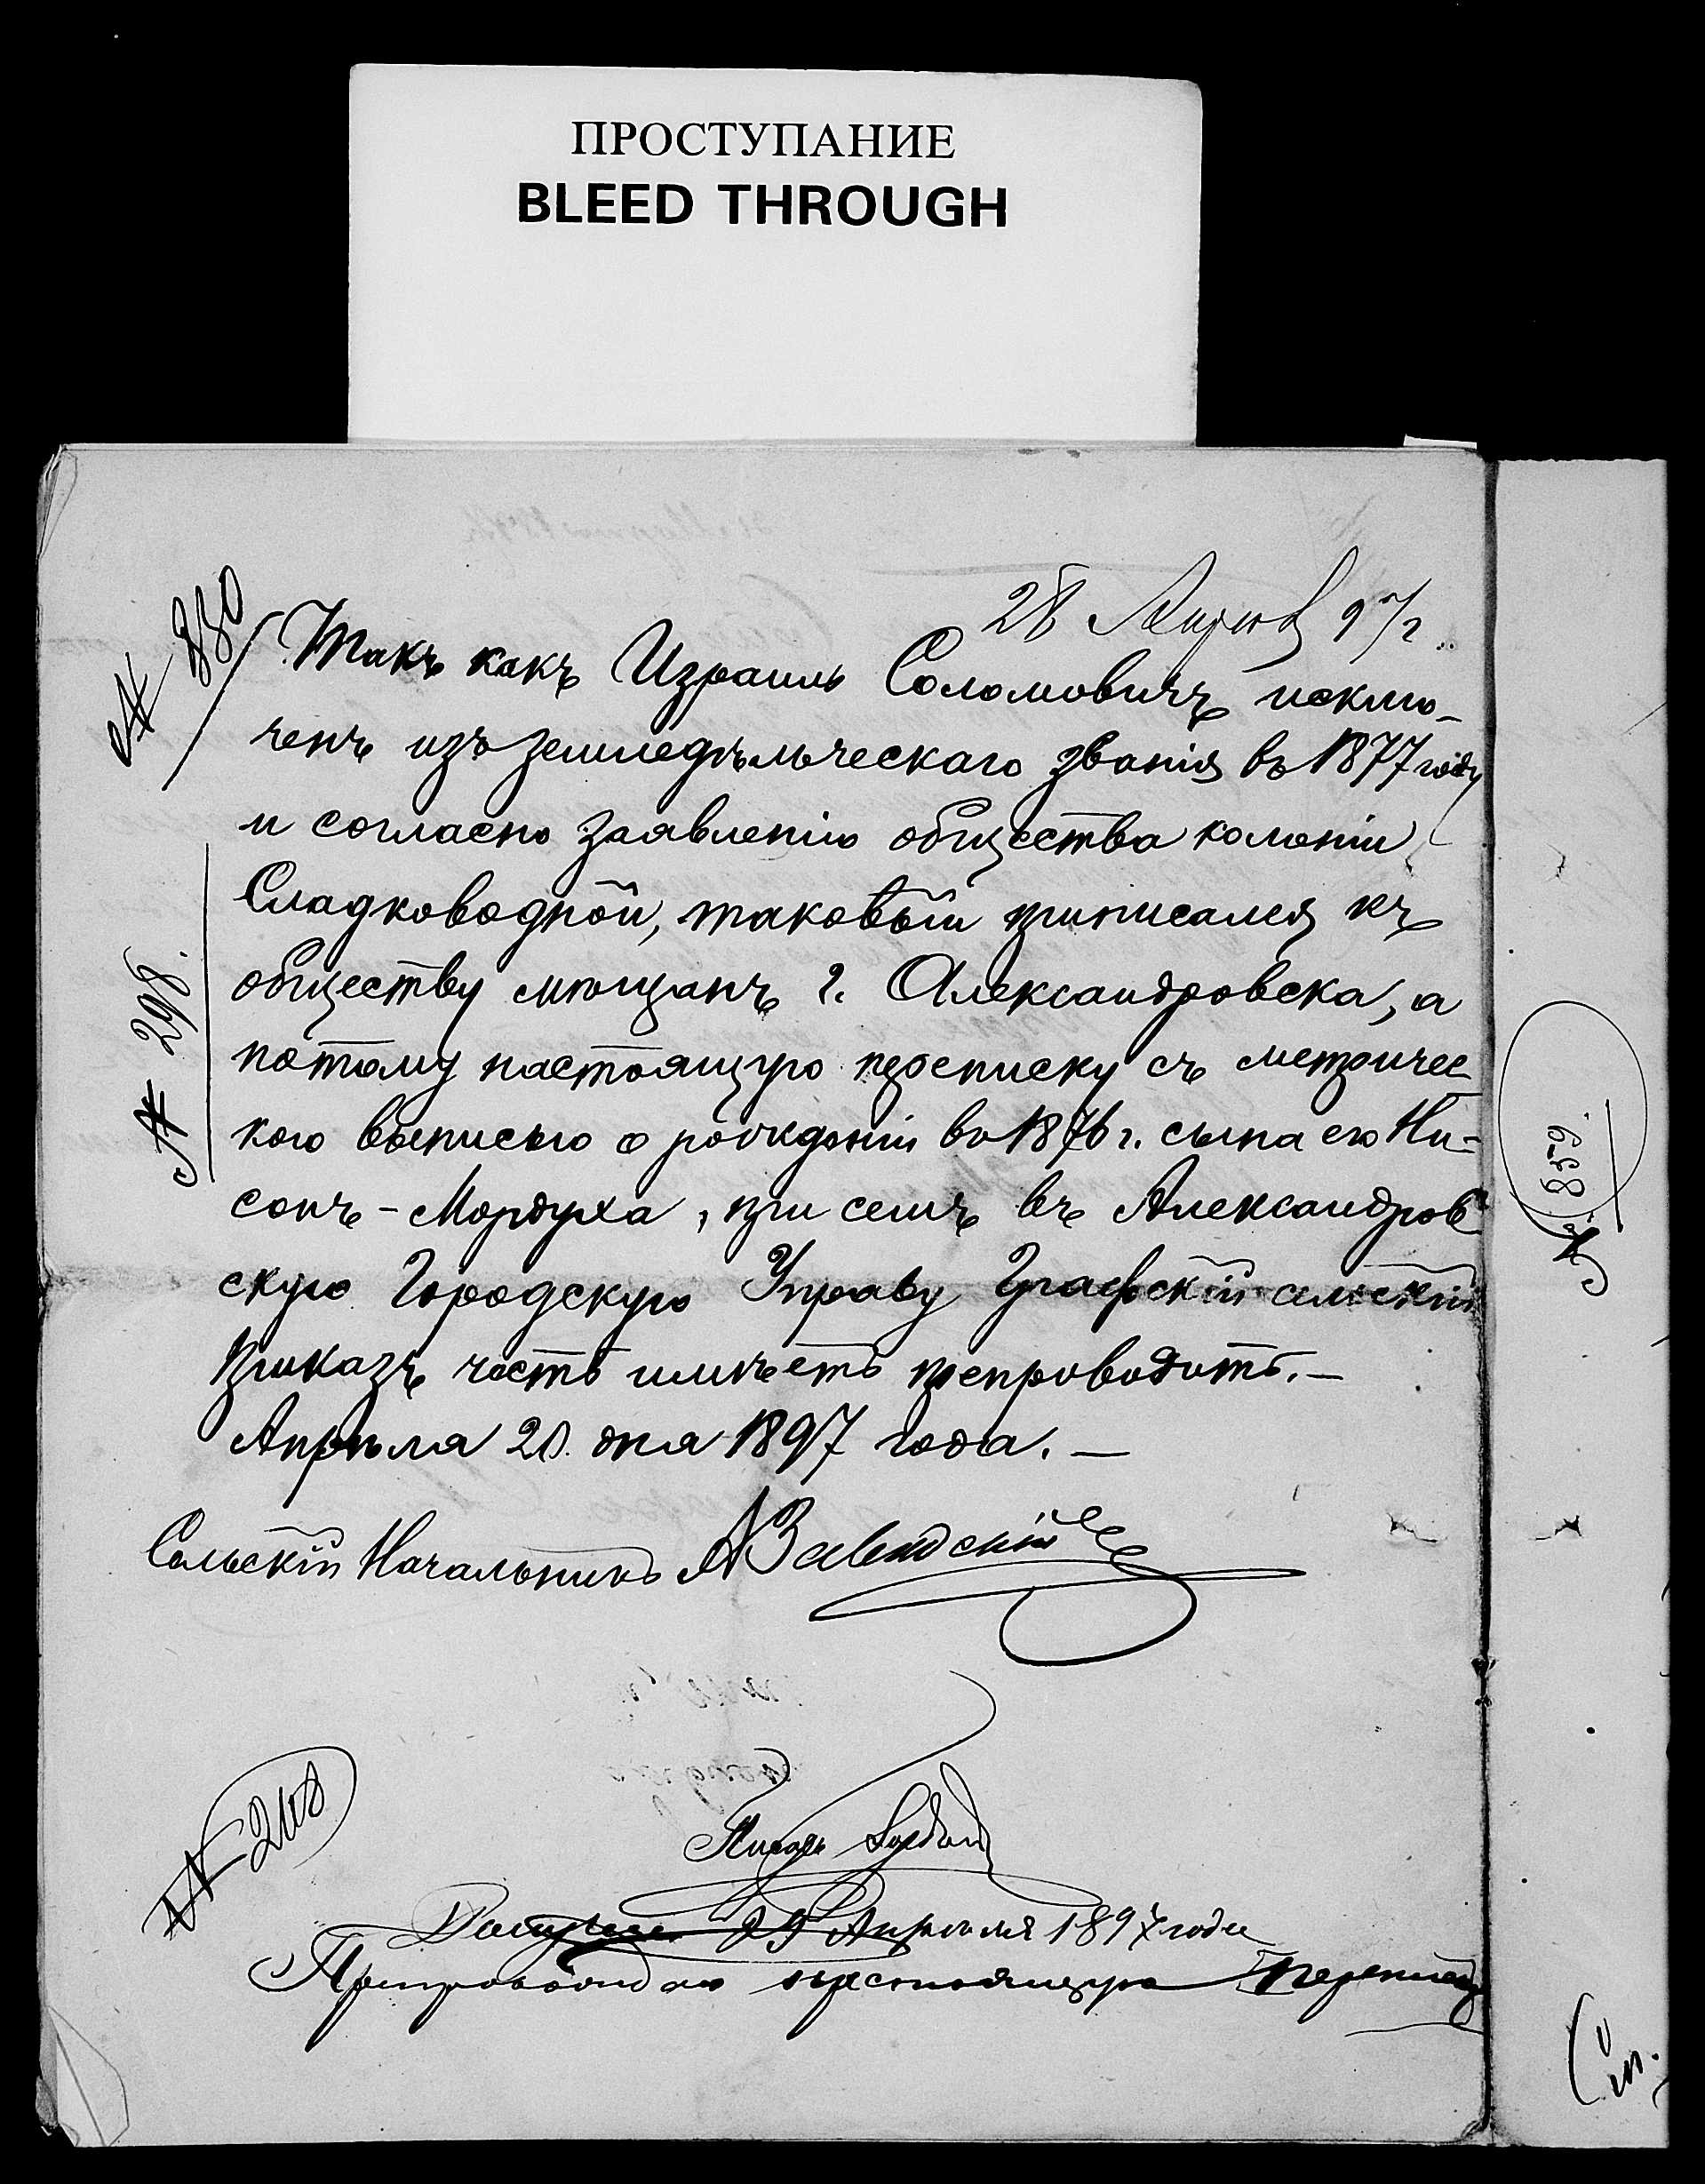 ПРОСТУПАНИЕ
BLEED THROUGH
28 Апрѣля 97 г.
№ 830
Такъ какъ Израиль Соломовичъ исклю-
ченъ изъ земледѣльческаго званія въ 1877 году
и согласно заявленію общества колоніи
Сладководной, таковый приписался къ
обществу мѣщанъ г. Александровска, а
№ 298.
потому настоящую переписку съ метричес
кою выписью о рожденіи въ 1876 г. сына его Ни-
сонъ-Мордуха, при семъ въ Александров
скую Городскую Управу Графскій сельскій
приказъ честь имѣетъ препроводить.-
Апрѣля 20 дня 1897 года.-
Сельскій Начальникъ АЗавадскій
Писарь
№ 208
Апрѣля 1897 года
Препровождаю настоящую переписку
№ 859.